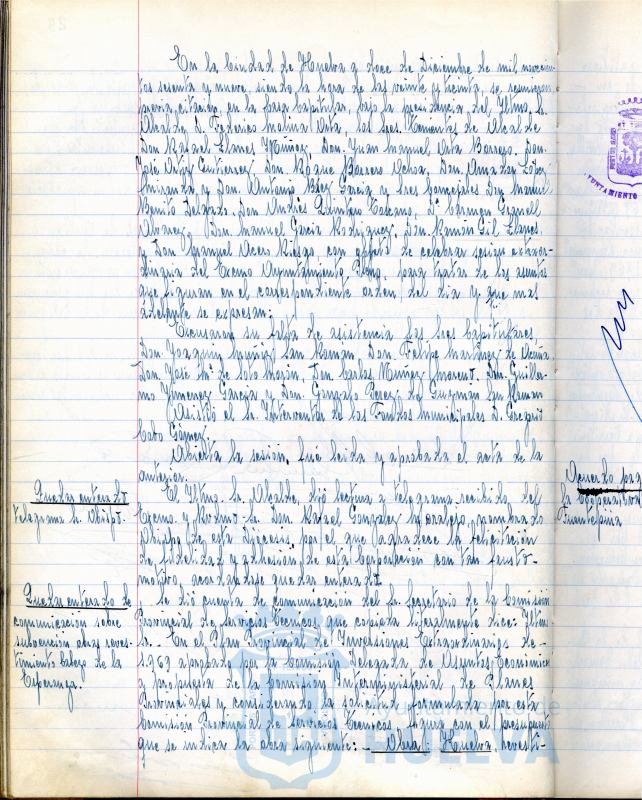 En la Ciudad de Huelva a doce de Diciembre de mil novecien-
tos sesenta y nueve, siendo la hora de las veinte y treinta, se reunieron
previa citación, en la Casa Capitular, bajo la presidencia del Iltmo. Sr.
Alcalde D. Federico Molina Orta, los Sres. Tenientes de Alcalde
Don Rafael Llanes Muñoz, Don Juan Manuel Orta Borrego, Don
José Ortiz Gutierrez, Don Roque Barcos Ochoa, Don Amadeo López
Miranda y Don Antonio Rey García y Sres Concejales Don Manuel
Benito Delgado, Don Andrés Quintero Toscano, Dª Carmen Granell
Alvarez, Don Manuel García Rodriguez, Don Ramón Gil Llanes,
Don Manuel Oces Riesgo, con objeto de celebrar sesión extraor-
dinaria del Excmo Ayuntamiento Pleno, para tratar de los asuntos
que figuran en el correspondiente orden del dia y que mas
adelante se expresan:
Excusaron su falta de asistencia los Sres Capitulares
Don Joaquin San Roman, Don Felipe Martinez de Acuña,
Don José Mª de Soto Morón, Don Carlos Muñoz Moreno, Don Guiller-
mo Gimenez García y Don Gonzalo Perez de Guzman San Roman
Asistió el Sr Interventor de los Fondos Municipales D. Gregorio
Cabo Gómez
Abierta la sesión, fué leida y aprobada el acta de la
anterior.
Quedar enterado
telegrama Sr. Obispo.
El Iltmo. Sr. Alcalde, dió lectura a telegrama recibido del
Excmo. y Rvdmo. Sr. Don Rafael Gonzalez Moralejo, nombrado
Obispo de esta Diocesis, por el que agradece la felicitación
de fidelidad y adhesión de esta Corporación con tan fausto
motivo, acordandose quedar enterado.
Quedar enterado de
comunicación sobre
subvención obras reves-
timiento Cabezo de la
Esperanza.
Se dió cuenta de comunicación del Sr. Secretario de la Comisión
Provincial de Servicios Tecnicos que copiada literalmente dice: Iltmo
Sr.- En el Plan Provincial de Inversiones Extraordinarias de
1.969 aprobado por la Comisión Delegada de Asuntos Económicos
a propuesta de la Comisión Interministerial de Planes
Provinciales y considerando la solicitud formulada por esta
Comisión Provincial de Servicios Tecnicos, figura con el presupuesto
que se indica la obra siguiente: Obra: Huelva, revesti-
Acuerdo pa
la Cooperativa
Fuentepina
AYUNTAMIENTO
Ayuntamiento de
HUELVA